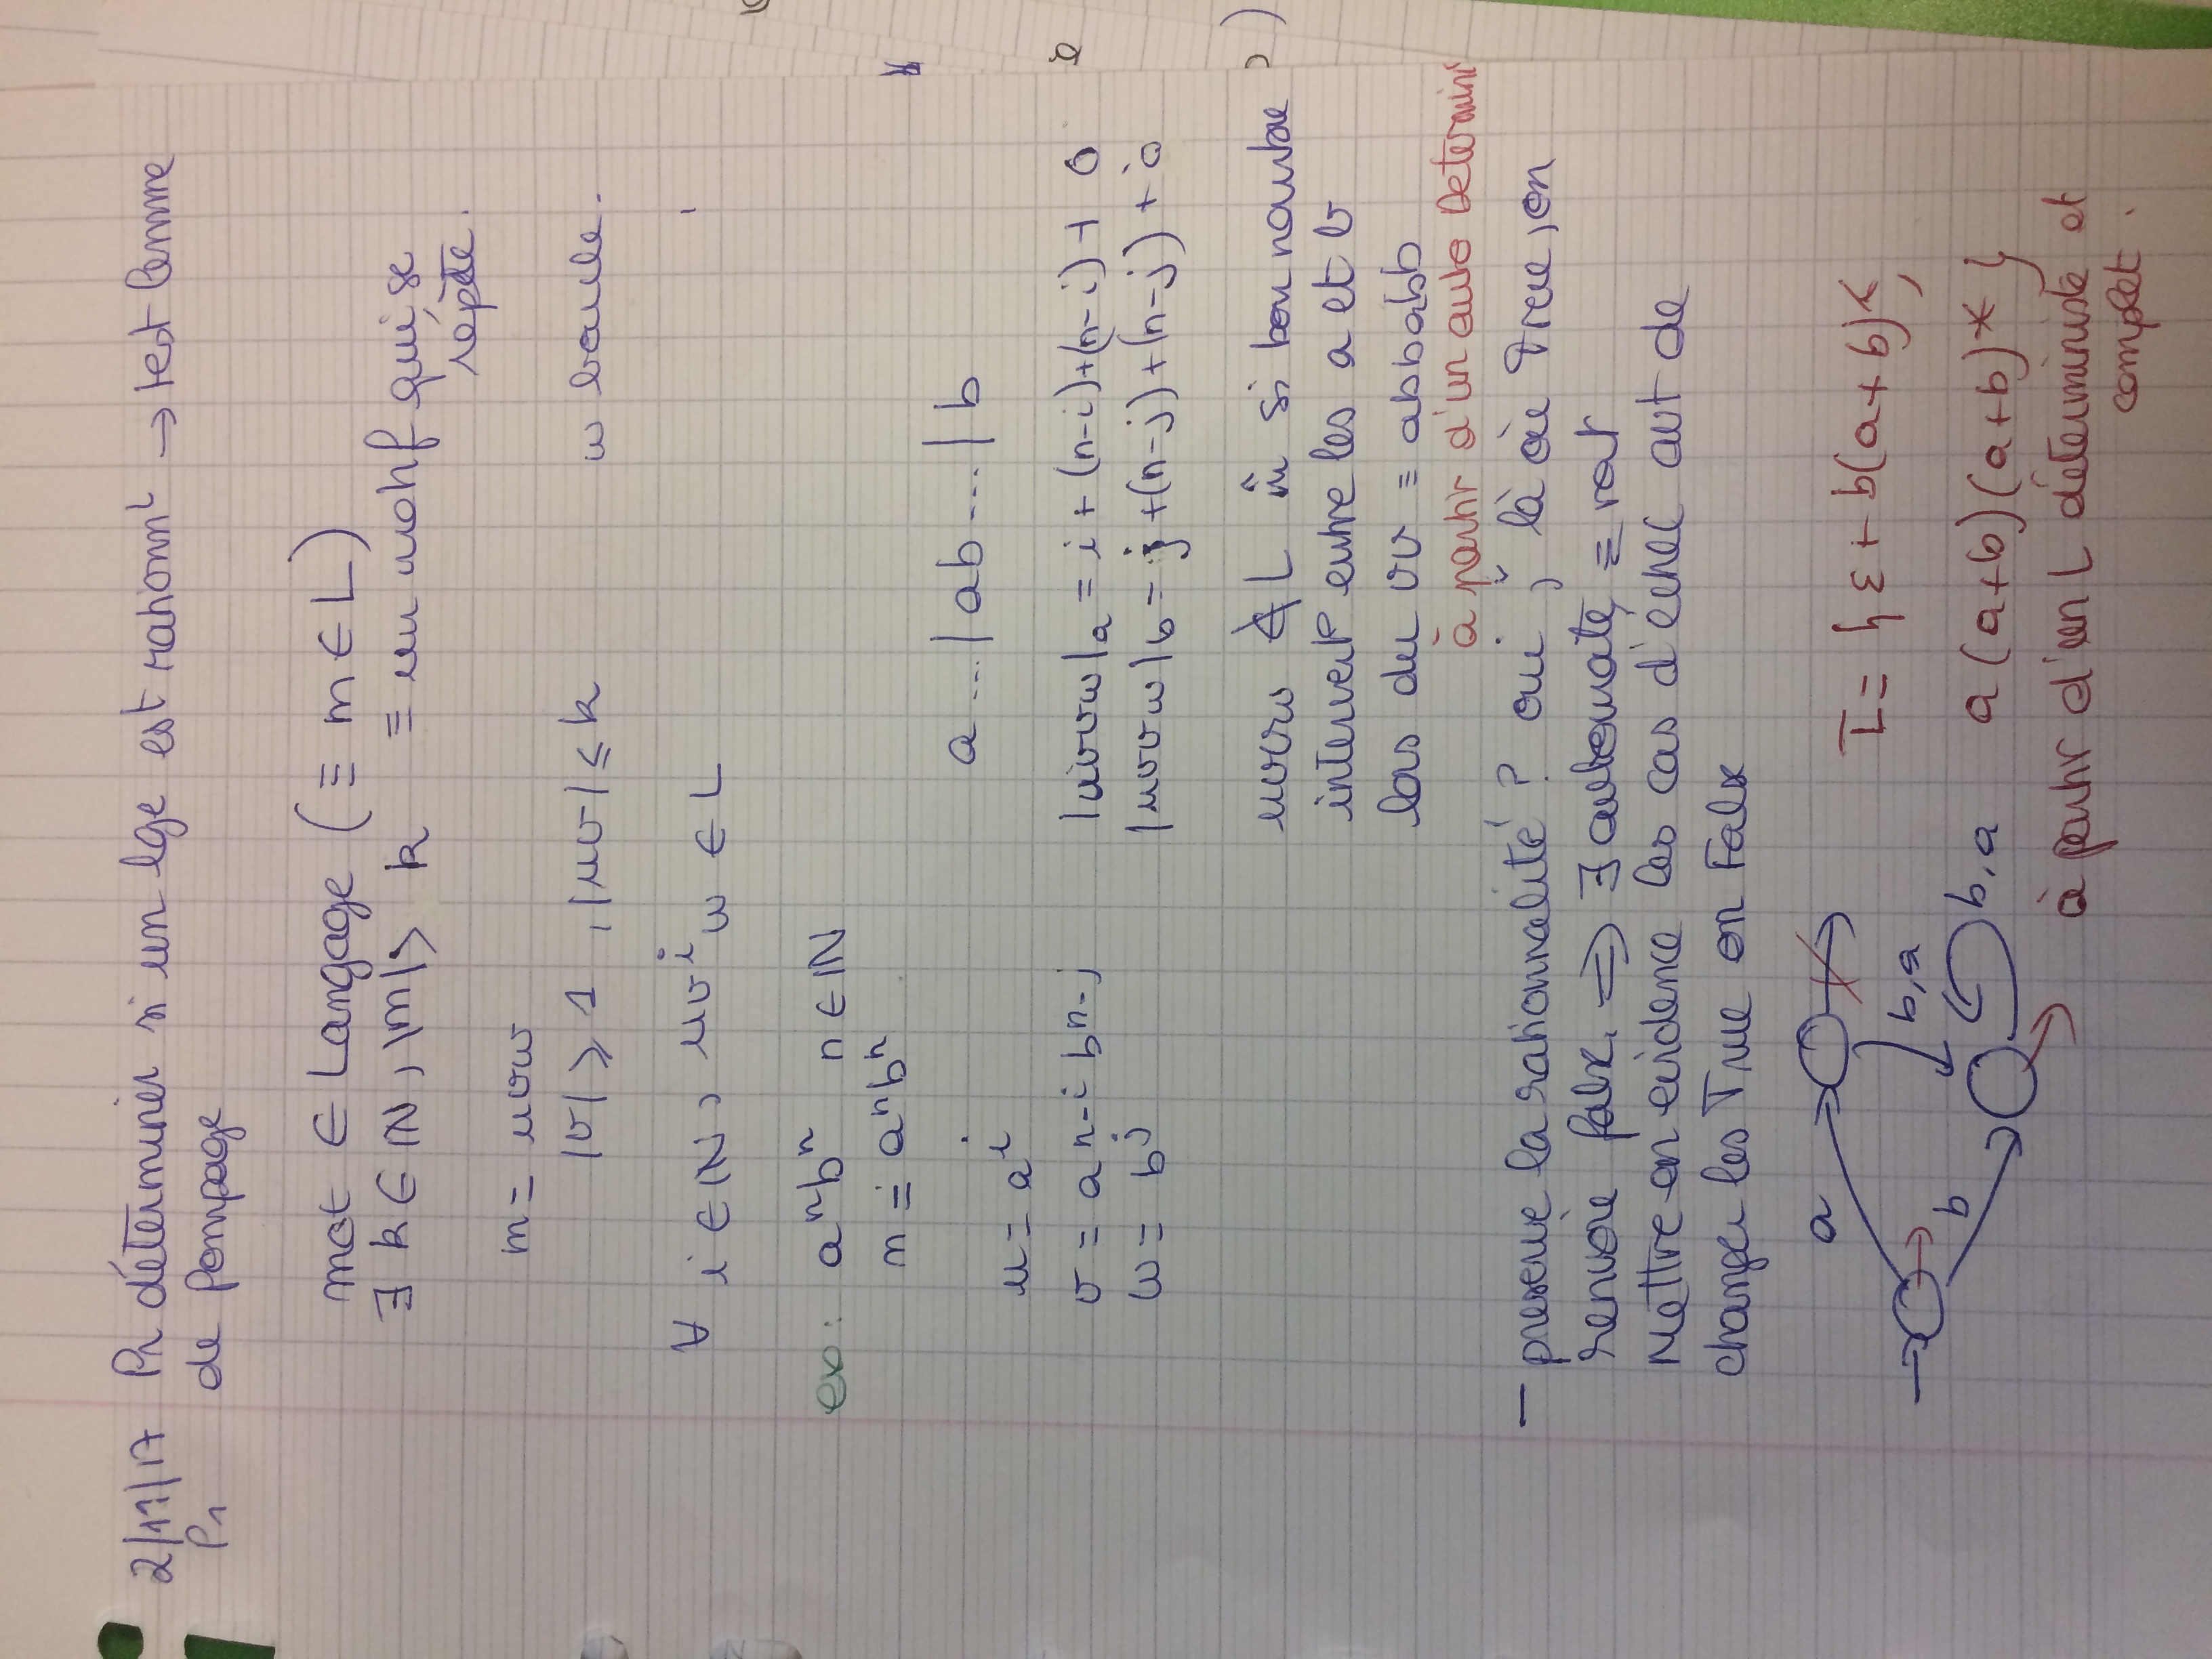 2/11/17 Pr déterminer si un lge est rationnl → test lemme
P1 de Pompage
mot ∈ Langage (≡ m ∈ L)
∃ k ∈ ℕ, |m| > k ≡ un motif qui se
répète.
m = uvw
|v| ⩾ 1 , |uv| ⩽ k w boucle.
∀ i ∈ ℕ, uvⁱw ∈ L
ex: aⁿbⁿ n ∈ ℕ
m = aⁿbⁿ
a ... | ab ... | b
u = aⁱ
v = aⁿ⁻ⁱ bⁿ⁻ʲ |uvvw|a = i + (n-i)+(n-i) + 0
w = bʲ |uvvw|b = j +(n-j)+(n-j) + 0
uvvw ∉ L m̂ si bon nombre
intervert° entre les a et b
lors du vv ≡ abbabb
à partir d'un auto Determini
- preserve la rationnalité ? oui , là où True, on
renvoie false. ⇒ ∃ automate, ≡ rat
Mettre en evidence les cas d'échec avt de
changer les True en False
a
b,a
b
b,a
L̅ = { ε + b(a+b)*,
a (a+b)(a+b)* }
à partir d'un L déterministe et
complet.